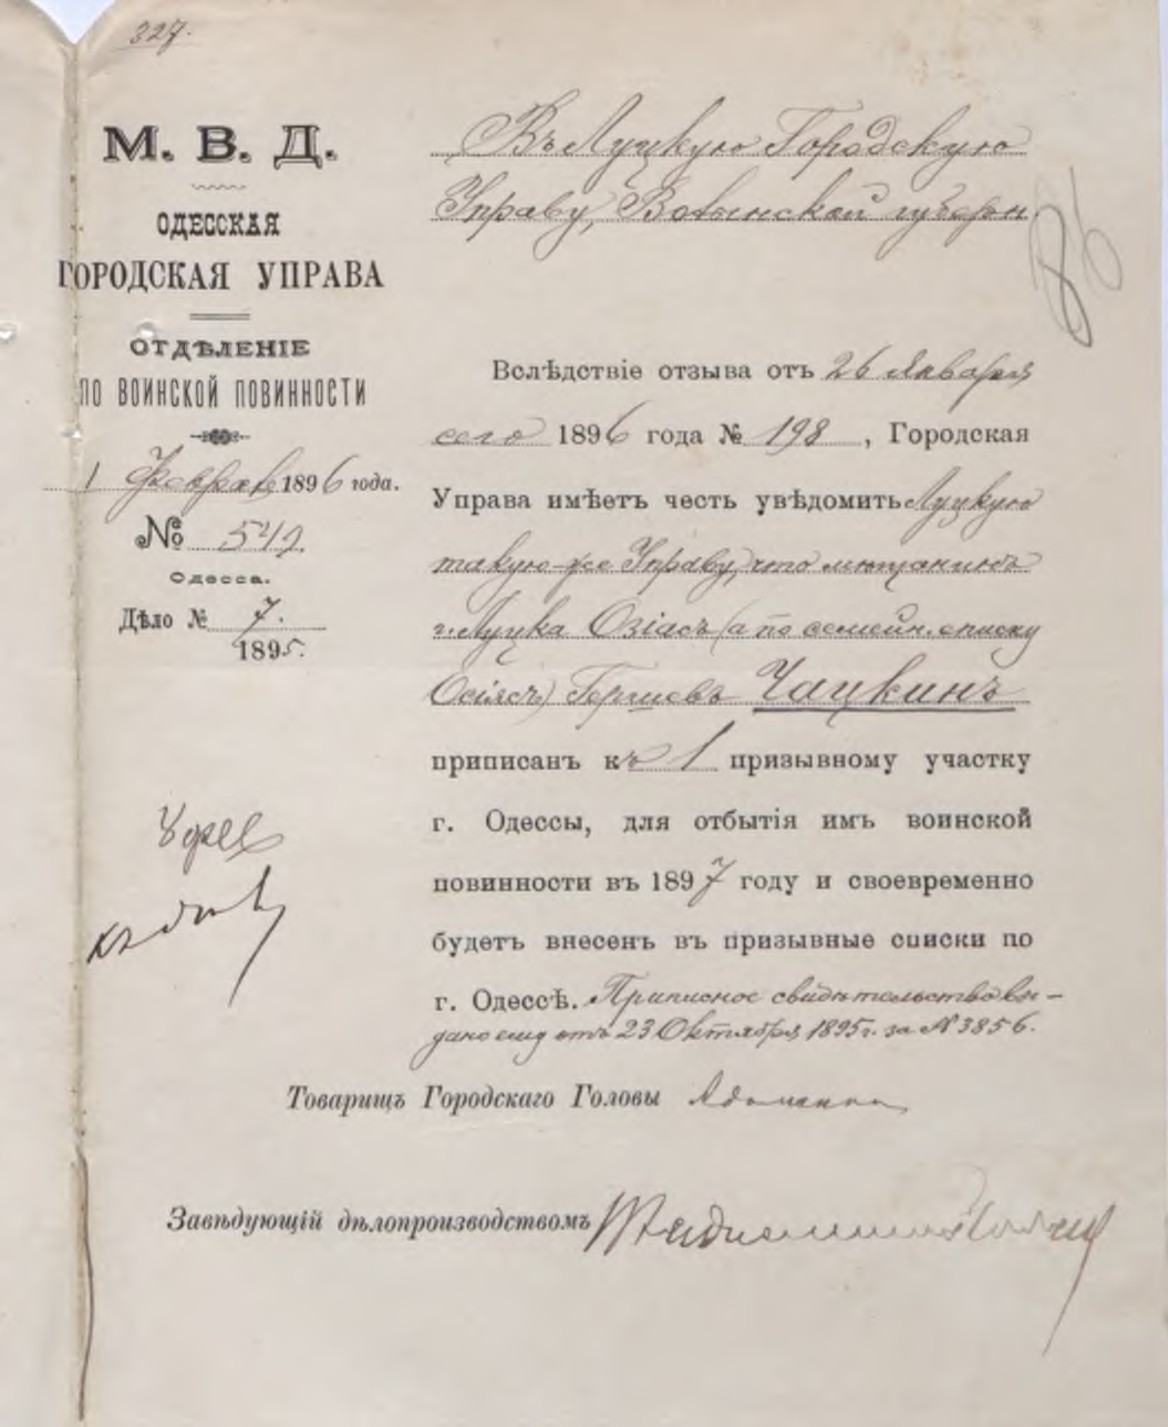 327.
М. В. Д.
ОДЕССКАЯ
ГОРОДСКАЯ УПРАВА
ОТДѢЛЕНІЕ
ПО ВОИНСКОЙ ПОВИННОСТИ
1 Феврал 1896 года.
№ 549
Одесса.
Дѣло № 7.
1895.
Въ Луцкую Городскую
Управу, Волынской губерн.
86
Вслѣдствіе отзыва отъ 26 Января
сего 1896 года № 198, Городская
Управа имѣетъ честь увѣдомить Луцкую
такую-же Управу, что мѣщанинъ
г. Луцка Озіасъ (а по семейн. списку
Осіясъ) Гершевъ Чацкинъ
приписанъ къ 1 призывному участку
г. Одессы, для отбытія имъ воинской
повинности въ 1897 году и своевременно
будетъ внесенъ въ призывные списки по
г. Одессѣ. Приписное свидѣтельство вы-
дано ему отъ 23 Октября 1895 г. за № 3856.
Товарищъ Городскаго Головы
Завѣдующій дѣлопроизводствомъ